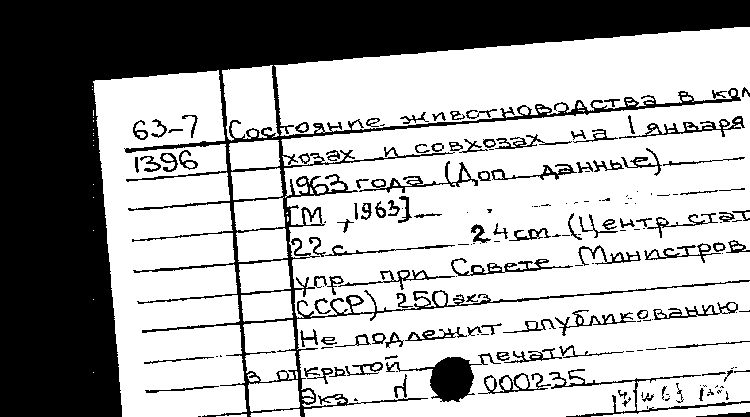 63-7 Состояние животноводства в кол
1396 хозах и совхозах на 1 января
1963 года. (Доп. данные).
[М, 1963]
22 с. 24 см. (Центр. стат
упр. при Совете Министров
СССР). 250 экз.
Не подлежит опубликованию
в открытой печати.
Экз. № 000235.